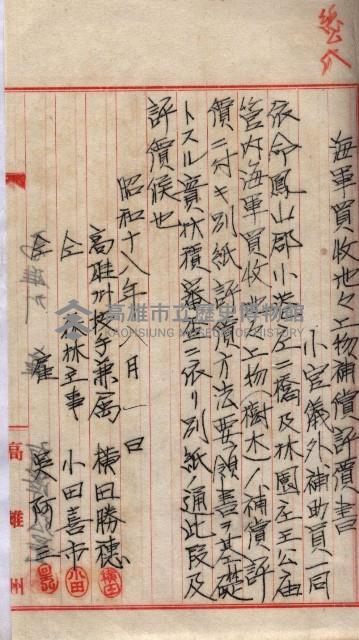 海軍買收地々上物補償評價書
小官儀外補助員一同
依命鳳山郡小港庄二橋及林園庄王公庙
管内海軍買收地々上物(樹木)ノ補償評
價ニ付キ別紙評價方法要領書ヲ基礎
トスル實状積算ニ依リ別紙ノ通此段及
評價候也
昭和十八年 月一日
高雄州技手兼属 横田勝穗
仝 農林主事 小田喜市
仝 雇 吳阿三
高雄州
高雄市立歷史博物館
KAOHSIUNG MUSEUM OF HISTORY